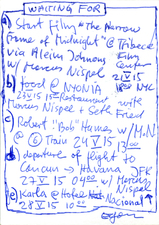 WAITING FOR
a) Start Film "The Narrow
Frame of Midnight" @ Tribeca
via Aleim Johnous Film
w/ Marcus Nispel Center
21 V 15
18 00 NYC
b) food @ NYONIA
23 V 15 Restaurant with
Marcus Nispel + Seth Fried
c) Robert "Bob" Hames w/ M.N
@ 6 Train 24 V 15
13 00
d) departure of flight to
Cancun → Havana JFK
27 V 15 04 00 w/ Marcus
Nispel
e) Karla @ Hotel Nacional
28 V 15 10 00